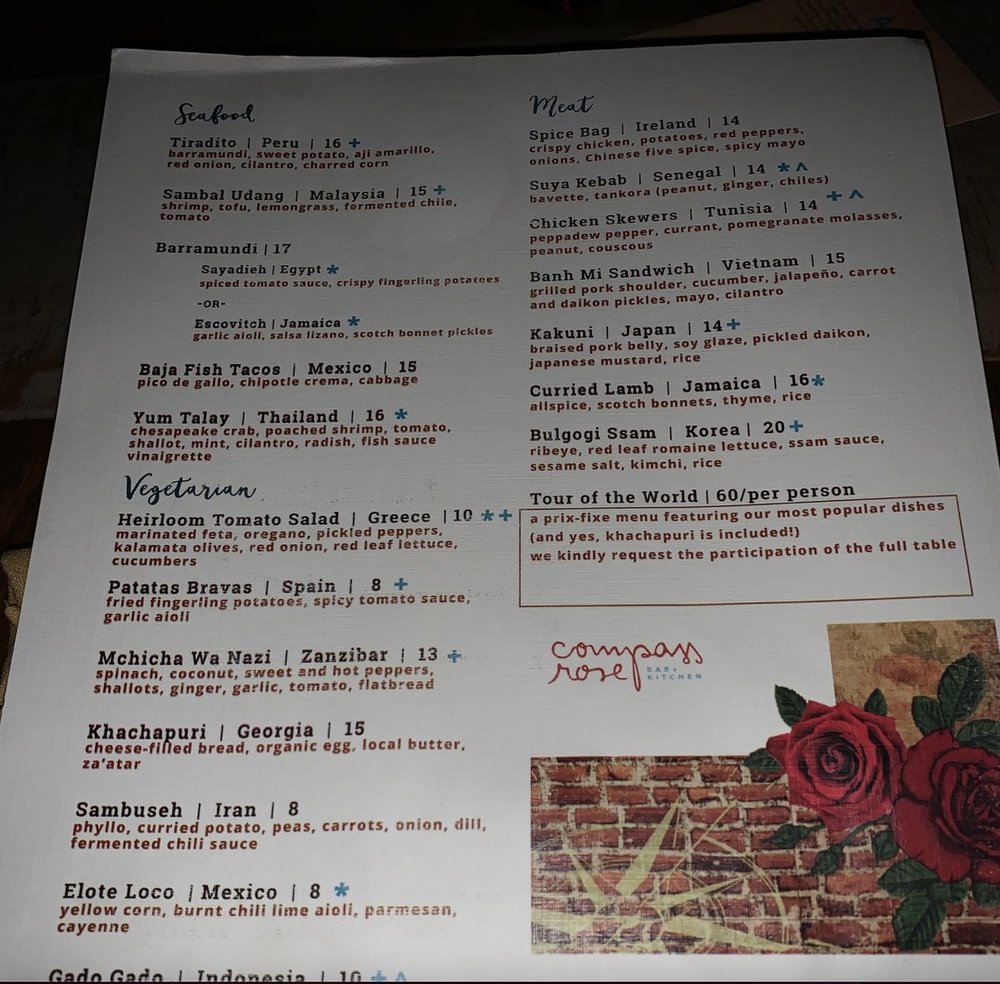 Seafood
Tiradito | Peru | 16 +
barramundi, sweet potato, aji amarillo,
red onion, cilantro, charred corn
Sambal Udang | Malaysia | 15 +
shrimp, tofu, lemongrass, fermented chile,
tomato
Barramundi | 17
Sayadieh | Egypt *
spiced tomato sauce, crispy fingerling potatoes
-OR-
Escovitch | Jamaica *
garlic aioli, salsa lizano, scotch bonnet pickles
Baja Fish Tacos | Mexico | 15
pico de gallo, chipotle crema, cabbage
Yum Talay | Thailand | 16 *
chesapeake crab, poached shrimp, tomato,
shallot, mint, cilantro, radish, fish sauce
vinaigrette
Vegetarian
Heirloom Tomato Salad | Greece | 10 * +
marinated feta, oregano, pickled peppers,
kalamata olives, red onion, red leaf lettuce,
cucumbers
Patatas Bravas | Spain | 8 +
fried fingerling potatoes, spicy tomato sauce,
garlic aioli
Mchicha Wa Nazi | Zanzibar | 13 +
spinach, coconut, sweet and hot peppers,
shallots, ginger, garlic, tomato, flatbread
Khachapuri | Georgia | 15
cheese-filled bread, organic egg, local butter,
za'atar
Sambuseh | Iran | 8
phyllo, curried potato, peas, carrots, onion, dill,
fermented chili sauce
Elote Loco | Mexico | 8 *
yellow corn, burnt chili lime aioli, parmesan,
cayenne
Gado Gado | Indonesia | 10 + ^
Meat
Spice Bag | Ireland | 14
crispy chicken, potatoes, red peppers,
onions, Chinese five spice, spicy mayo
Suya Kebab | Senegal | 14 * ^
bavette, tankora (peanut, ginger, chiles)
Chicken Skewers | Tunisia | 14 + ^
peppadew pepper, currant, pomegranate molasses,
peanut, couscous
Banh Mi Sandwich | Vietnam | 15
grilled pork shoulder, cucumber, jalapeño, carrot
and daikon pickles, mayo, cilantro
Kakuni | Japan | 14 +
braised pork belly, soy glaze, pickled daikon,
japanese mustard, rice
Curried Lamb | Jamaica | 16 *
allspice, scotch bonnets, thyme, rice
Bulgogi Ssam | Korea | 20 +
ribeye, red leaf romaine lettuce, ssam sauce,
sesame salt, kimchi, rice
Tour of the World | 60/per person
a prix-fixe menu featuring our most popular dishes
(and yes, khachapuri is included!)
we kindly request the participation of the full table
compass
rose BAR +
KITCHEN